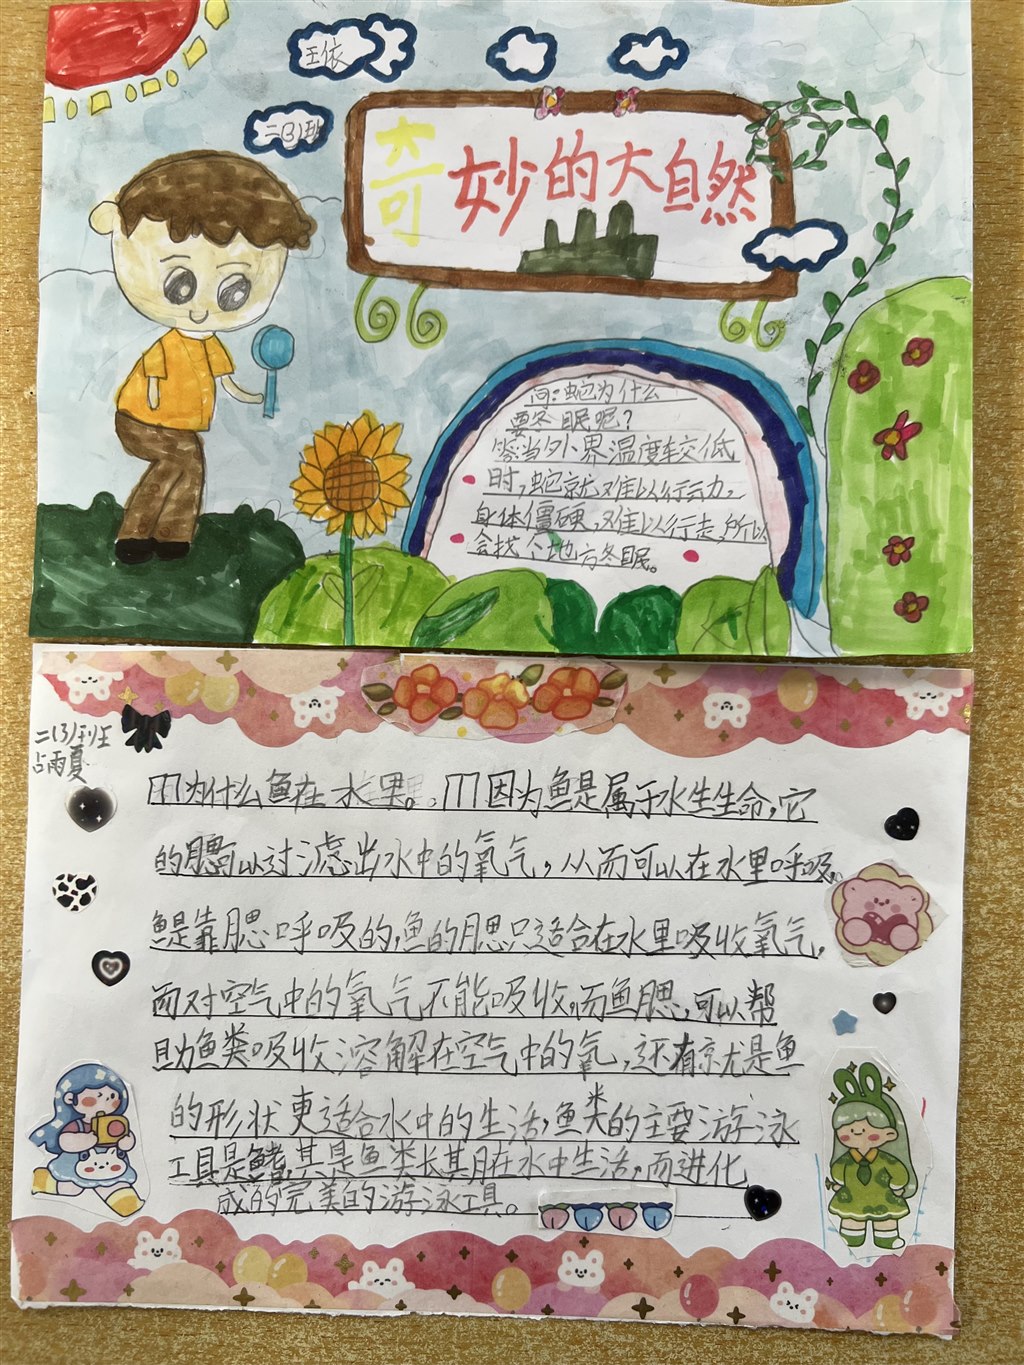 王依
二(3)班
奇妙的大自然
问:蛇为什么
要冬眠呢?
答:当外界温度较低
时,蛇就难以行动,
身体僵硬,难以行走,所以
会找个地方冬眠。
二(3)班
占雨夏
问为什么鱼在水里。门因为鱼是属于水生生命,它
的腮可以过滤出水中的氧气,从而可以在水里呼吸。
鱼是靠腮呼吸的,鱼的腮只适合在水里吸收氧气,
而对空气中的氧气不能吸收,而鱼腮,可以帮
助鱼类吸收溶解在空气中的氧,还有就是鱼
的形状更适合水中的生活,鱼类的主要游泳
工具是鳍,其是鱼类长期在水中生活,而进化
成的完美的游泳工具。